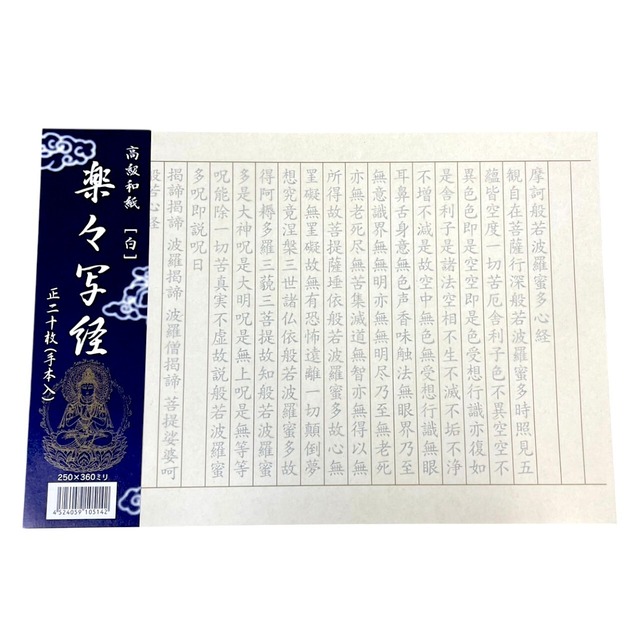 高級和紙[白]
楽々写経
正二十枚(手本入)
250×360ミリ
4524059105142
摩訶般若波羅蜜多心経
観自在菩薩行深般若波羅蜜多時照見五
蘊皆空度一切苦厄舎利子色不異空空不
異色色即是空空即是色受想行識亦復如
是舎利子是諸法空相不生不滅不垢不浄
不増不減是故空中無色無受想行識無眼
耳鼻舌身意無色声香味触法無眼界乃至
無意識界無無明亦無無明尽乃至無老死
亦無老死尽無苦集滅道無智亦無得以無
所得故菩提薩埵依般若波羅蜜多故心無
罣礙無罣礙故無有恐怖遠離一切顛倒夢
想究竟涅槃三世諸仏依般若波羅蜜多故
得阿耨多羅三藐三菩提故知般若波羅蜜
多是大神呪是大明呪是無上呪是無等等
呪能除一切苦真実不虚故説般若波羅蜜
多呪即説呪曰
揭諦揭諦 波羅揭諦 波羅僧揭諦 菩提娑婆呵
般若心経